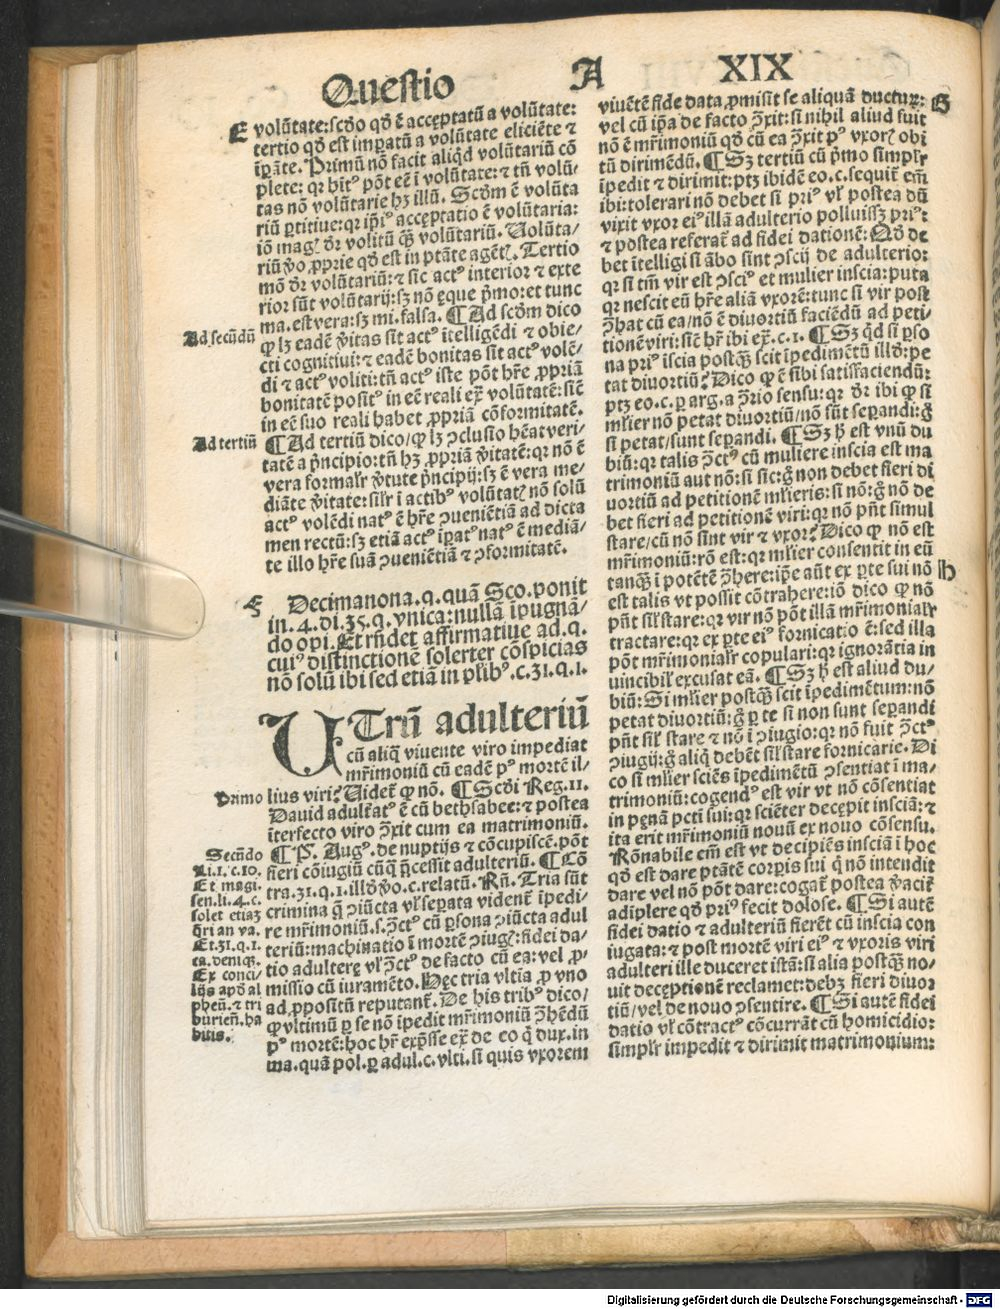 Questio A XIX
E volūtate: scd̄o qd̄ ē acceptatū a volūtate:
tertio qd̄ est imꝑatū a volūtate eliciēte ⁊
īꝑāte. Primū nō facit aliqd̄ volūtariū cō
plete: qꝛ bn̄ pōt eē ī volūtate: ⁊ tn̄ volū-
tas nō volūtarie hꝫ illū. Scd̄m ē volūta
riū ꝑtitiue: qꝛ ip̄iꝰ acceptatio ē volūtaria:
iō magꝭ dr̄ volitū qꝫ̄ volūtariū. Uolūta/
riū v̄o ꝓprie qd̄ est in ptāte agētꝭ. Tertio
mō dr̄ volūtariū: ⁊ sic actꝰ interior ⁊ exte
rior sūt volūtarij: sꝫ nō eque p̄mo: et tunc
ma. est vera: sꝫ mi. falsa. ¶ Ad scd̄m dico
Ad secūdū
ꝙ lꝫ eadē v̄itas sit actꝰ ītelligēdi ⁊ obie/
cti cognitiui: ⁊ eadē bonitas sit actꝰ volē/
di ⁊ actꝰ voliti: tn̄ actꝰ iste pōt hr̄e ꝓpriā
bonitatē positꝰ in eē reali ex̄ volūtatē: sic̄
in eē suo reali habet ꝓpriā cōformitatē.
Ad tertiū
¶ Ad tertiū dico/ꝙ lꝫ ↄclusio hēat veri/
tatē a p̄ncipio: tn̄ hꝫ ꝓpriā v̄itatē: qꝛ nō ē
vera formalr̄ v̄tute p̄ncipij: sꝫ ē vera me/
diāte v̄itate: silr̄ ī actibꝰ volūtatꝭ nō solū
actꝰ volēdi natꝰ ē hr̄e ↄueniētiā ad dicta
men rectū: sꝫ etiā actꝰ īꝑatꝰ natꝰ ē mediā/
te illo hr̄e suā ↄueniētiā ⁊ ↄformitatē.
F Decimanona. q. quā Sco. ponit
in. 4. di. 35. q. vnica: nullā īpugnā/
do opi. Et rn̄det affirmatiue ad. q.
cuiꝰ distinctionē solerter cōspicias
nō solū ibi sed etiā in p̄libꝰ. c. 31. q. 1.
UTrū adulteriū
cū aliq̄ viuente viro impediat
mr̄imoniū cū eadē pꝰ mortē il/
Primo
lius viri? Uidet̄ ꝙ nō. ¶ Scd̄i Reg. 11.
Dauid adult̄atꝰ ē cū bethsabee: ⁊ postea
īterfecto viro ↄ̄xit cum ea matrimoniū.
Secūdo
¶ P̄. Augꝰ. de nuptijs ⁊ cōcupiscē. pōt
fieri cōiugiū cūq̄ p̄cessit adulteriū. ¶ Cō
Li. 1. c. 10.
Et magi.
sen. li. 4. c.
solet etiaꝫ
q̄ri an va.
Et. 31. q. 1.
ca. deniqꝫ.
Ex conci-
lijs apd̄ al
pheñ. ⁊ tri
buriēn̄. ha
bitis.
tra. 31. q. 1. illd̄ v̄o. c. relatū. Rn̄. Tria sūt
crimina q̄ ↄiūcta vl̄ seꝑata vident̄ īpedi/
re mr̄imoniū. s. ↄ̄ctꝰ cū ꝑsona ↄiūcta adul
teriū: machinatio ī mortē ↄiugꝭ: fidei da/
tio adultere vl̄ ↄ̄ctꝰ de facto cū ea: vel ꝓ/
missio cū iuramēto. Hec tria vltīa ꝓ vno
ad ꝓpositū reputant̄. De his tribꝰ dico/
ꝙ vltimū ꝑ se nō īpedit mr̄imoniū ↄ̄hēdū
pꝰ mortē: hoc hr̄ exp̄sse ex̄ de eo q̄ dux. in
ma. quā pol. ꝑ adul. c. vlti. si quis vxorem
viuēte fide data ꝓmisit se aliquā ducturꝫ: G
vel cū ip̄a de facto ↄ̄xit: si nihil aliud fuit
nō ē mr̄imoniū qd̄ cū ea ↄ̄xit pꝰ vxorꝭ obi
tū dirimēdū. ¶ Sꝫ tertiū cū p̄mo simplr̄
īpedit ⁊ dirimit: ptꝫ ibidē eo. c. sequit̄ em̄
ibi: tolerari nō debet si priꝰ vl̄ postea dū
vixit vxor eiꝰ illā adulterio polluissꝫ priꝰ:
⁊ postea referat̄ ad fidei dationē: Qd̄ de
bet ītelligi si ābo sint ↄscij de adulterio:
qꝛ si tm̄ vir est ↄsciꝰ et mulier inscia: puta
qꝛ nescit eū hr̄e aliā vxorē: tunc si vir post
ↄ̄hat cū ea/nō ē diuortiū faciēdū ad peti/
tionē viri: sic̄ hr̄ ibi ex̄. c. 1. ¶ Sꝫ qd̄ si ꝑso
na priꝰ īscia postqꝫ̄ scit īpedimētū illd̄: pe
tat diuortiū? Dico ꝙ ē sibi satisfaciendū:
ptꝫ eo. c. ꝑ arg. a ↄ̄rio sensu: qꝛ dr̄ ibi ꝙ si
ml̄ier nō petat diuortiū/nō sūt seꝑandi: g̊
si petat/sunt seꝑandi. ¶ Sꝫ h̄ est vnū du
biū: qꝛ talis ↄ̄ctꝰ cū muliere inscia est ma
trimoniū aut nō: si sic: g̊ non debet fieri di
uortiū ad petitionē ml̄ieris: si nō: g̊ nō de
bet fieri ad petitionē viri: qꝛ nō pn̄t simul
stare/cū nō sint vir ⁊ vxor? Dico ꝙ nō est
mr̄imoniū: rō est: qꝛ ml̄ier consentit in eū
tanqꝫ̄ ī potētē ↄ̄here: ip̄e aūt ex ꝑte sui nō H
est talis vt possit cōtrahere: iō dico ꝙ nō
pn̄t sil̄ stare: qꝛ vir nō pōt illā mr̄imonialr̄
tractare: qꝛ ex ꝑte eiꝰ fornicatio ē: sed illa
pōt mr̄imonialr̄ copulari: qꝛ ignorātia in
uincibil̄ excusat eā. ¶ Sꝫ h̄ est aliud du/
biū: Si ml̄ier postqꝫ̄ scit īpedimētum: nō
petat diuortiū: g̊ ꝑ te si non sunt seꝑandi
pn̄t sil̄ stare ⁊ nō ī ↄiugio: qꝛ nō fuit ↄ̄ctꝰ
ↄiugij: g̊ aliq̄ debēt sil̄ stare fornicarie. Di
co si ml̄ier sciēs īpedimētū ↄsentiat ī ma/
trimoniū: cogendꝰ est vir vt nō cōsentiat
in penā pcti sui: qꝛ sciēter decepit insciā: ⁊
ita erit mr̄imoniū nouū ex nouo cōsensu.
Rōnabile em̄ est vt decipiēs insciā ī hoc
qd̄ est dare ptātē corꝑis sui q̄ nō intendit
dare vel nō pōt dare: cogat̄ postea v̄acit̄
adīplere qd̄ priꝰ fecit dolose. ¶ Si autē
fidei datio ⁊ adulteriū fierēt cū inscia con
iugata: ⁊ post mortē viri eiꝰ ⁊ vxoris viri
adulteri ille duceret istā: si alia postqꝫ̄ no/
uit deceptionē reclamet: debꝫ fieri diuor
tiū/vel de nouo ↄsentire. ¶ Si autē fidei
datio vl̄ cōtractꝰ cōcurrāt cū homicidio:
simplr̄ impedit ⁊ dirimit matrimonium:
Digitalisierung gefördert durch die Deutsche Forschungsgemeinschaft - DFG